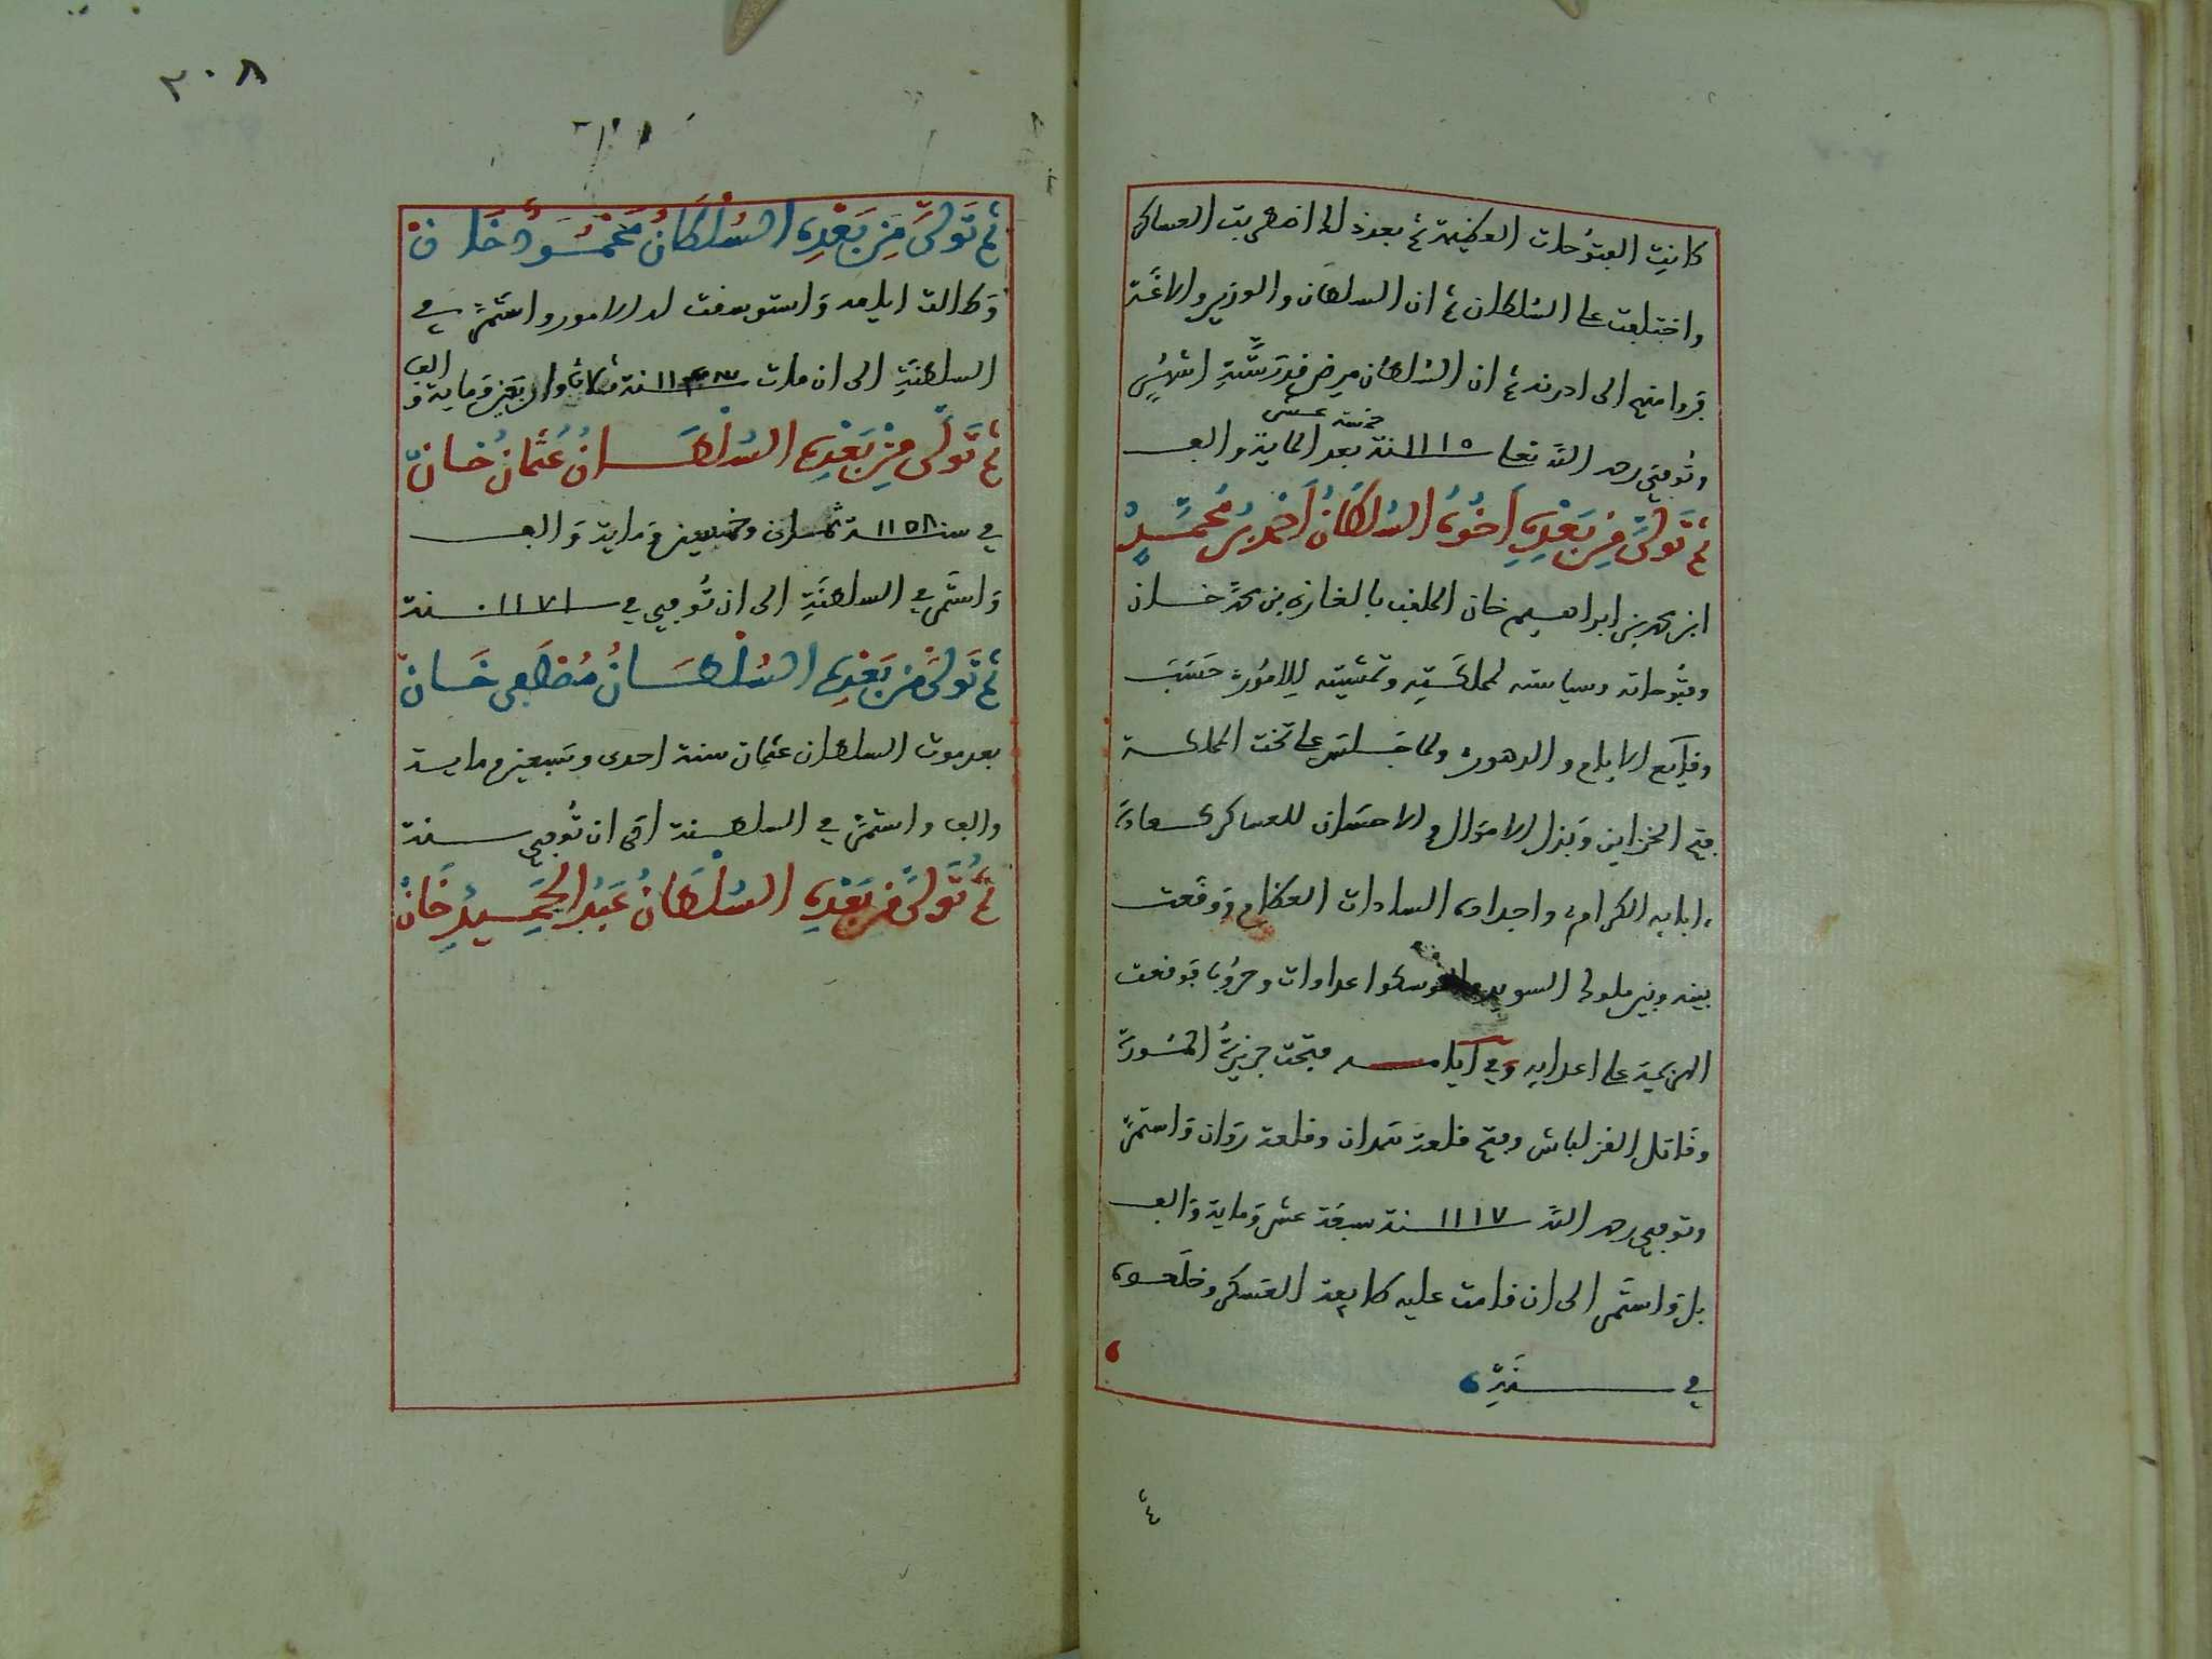 كانت الفتوحات العظيمة ثم بعد ذلك اضطربت العساكر
واختلفت على السلطان ثم ان السلطان والوزير والاغة
فروا منهم الى ادرنه ثم ان السلطان مرض قدر ستة اشهر
خمسة عشر
وتوفي رحمه الله تعالى سنة ١١١٥ بعد الماية والف
ثم تولى من بعده اخوه السلطان احمد بن محمد
ابن محمد بن ابراهيم خان الملقب بالغازي بن محمد خان
وفتوحاته وسياسته لمملكته وتمشيته للامور حسب
وقايع الايام والدهور ولما جلس على تخت المملكة
فتح الخزاين وبذل الاموال والاحسان للعساكر كعادة
ابايه الكرام واجداده السادات العظام ووقعت
بينه وبين ملوك السويد عداوات وحروبا فوقعت
الهزيمة على اعدايه وفي ايامه فتحت جزيرة المورة
وقاتل القزلباش وفتح قلعة همدان وقلعة روان واستمر
وتوفي رحمه الله سنة ١١١٧ سبعة عشر وماية والف
بل واستمر الى ان قامت عليه طايفة العسكر وخلعوه
في سنة
ثم
٢٠٨
ثم تولى من بعده السلطان محمود خان
وطالت ايامه واستوسقت له الامور واستمر في
السلطنة الى ان مات سنة واربعين وماية والف
ثم تولى من بعده السلطان عثمان خان
في سنة ١١٥٨ ثمان وخمسين وماية والف
واستمر في السلطنة الى ان توفي في سنة ١١٧١
ثم تولى من بعده السلطان مصطفى خان
بعد موت السلطان عثمان سنة احدى وسبعين وماية
والف واستمر في السلطنة الى ان توفي سنة
ثم تولى من بعده السلطان عبد الحميد خان